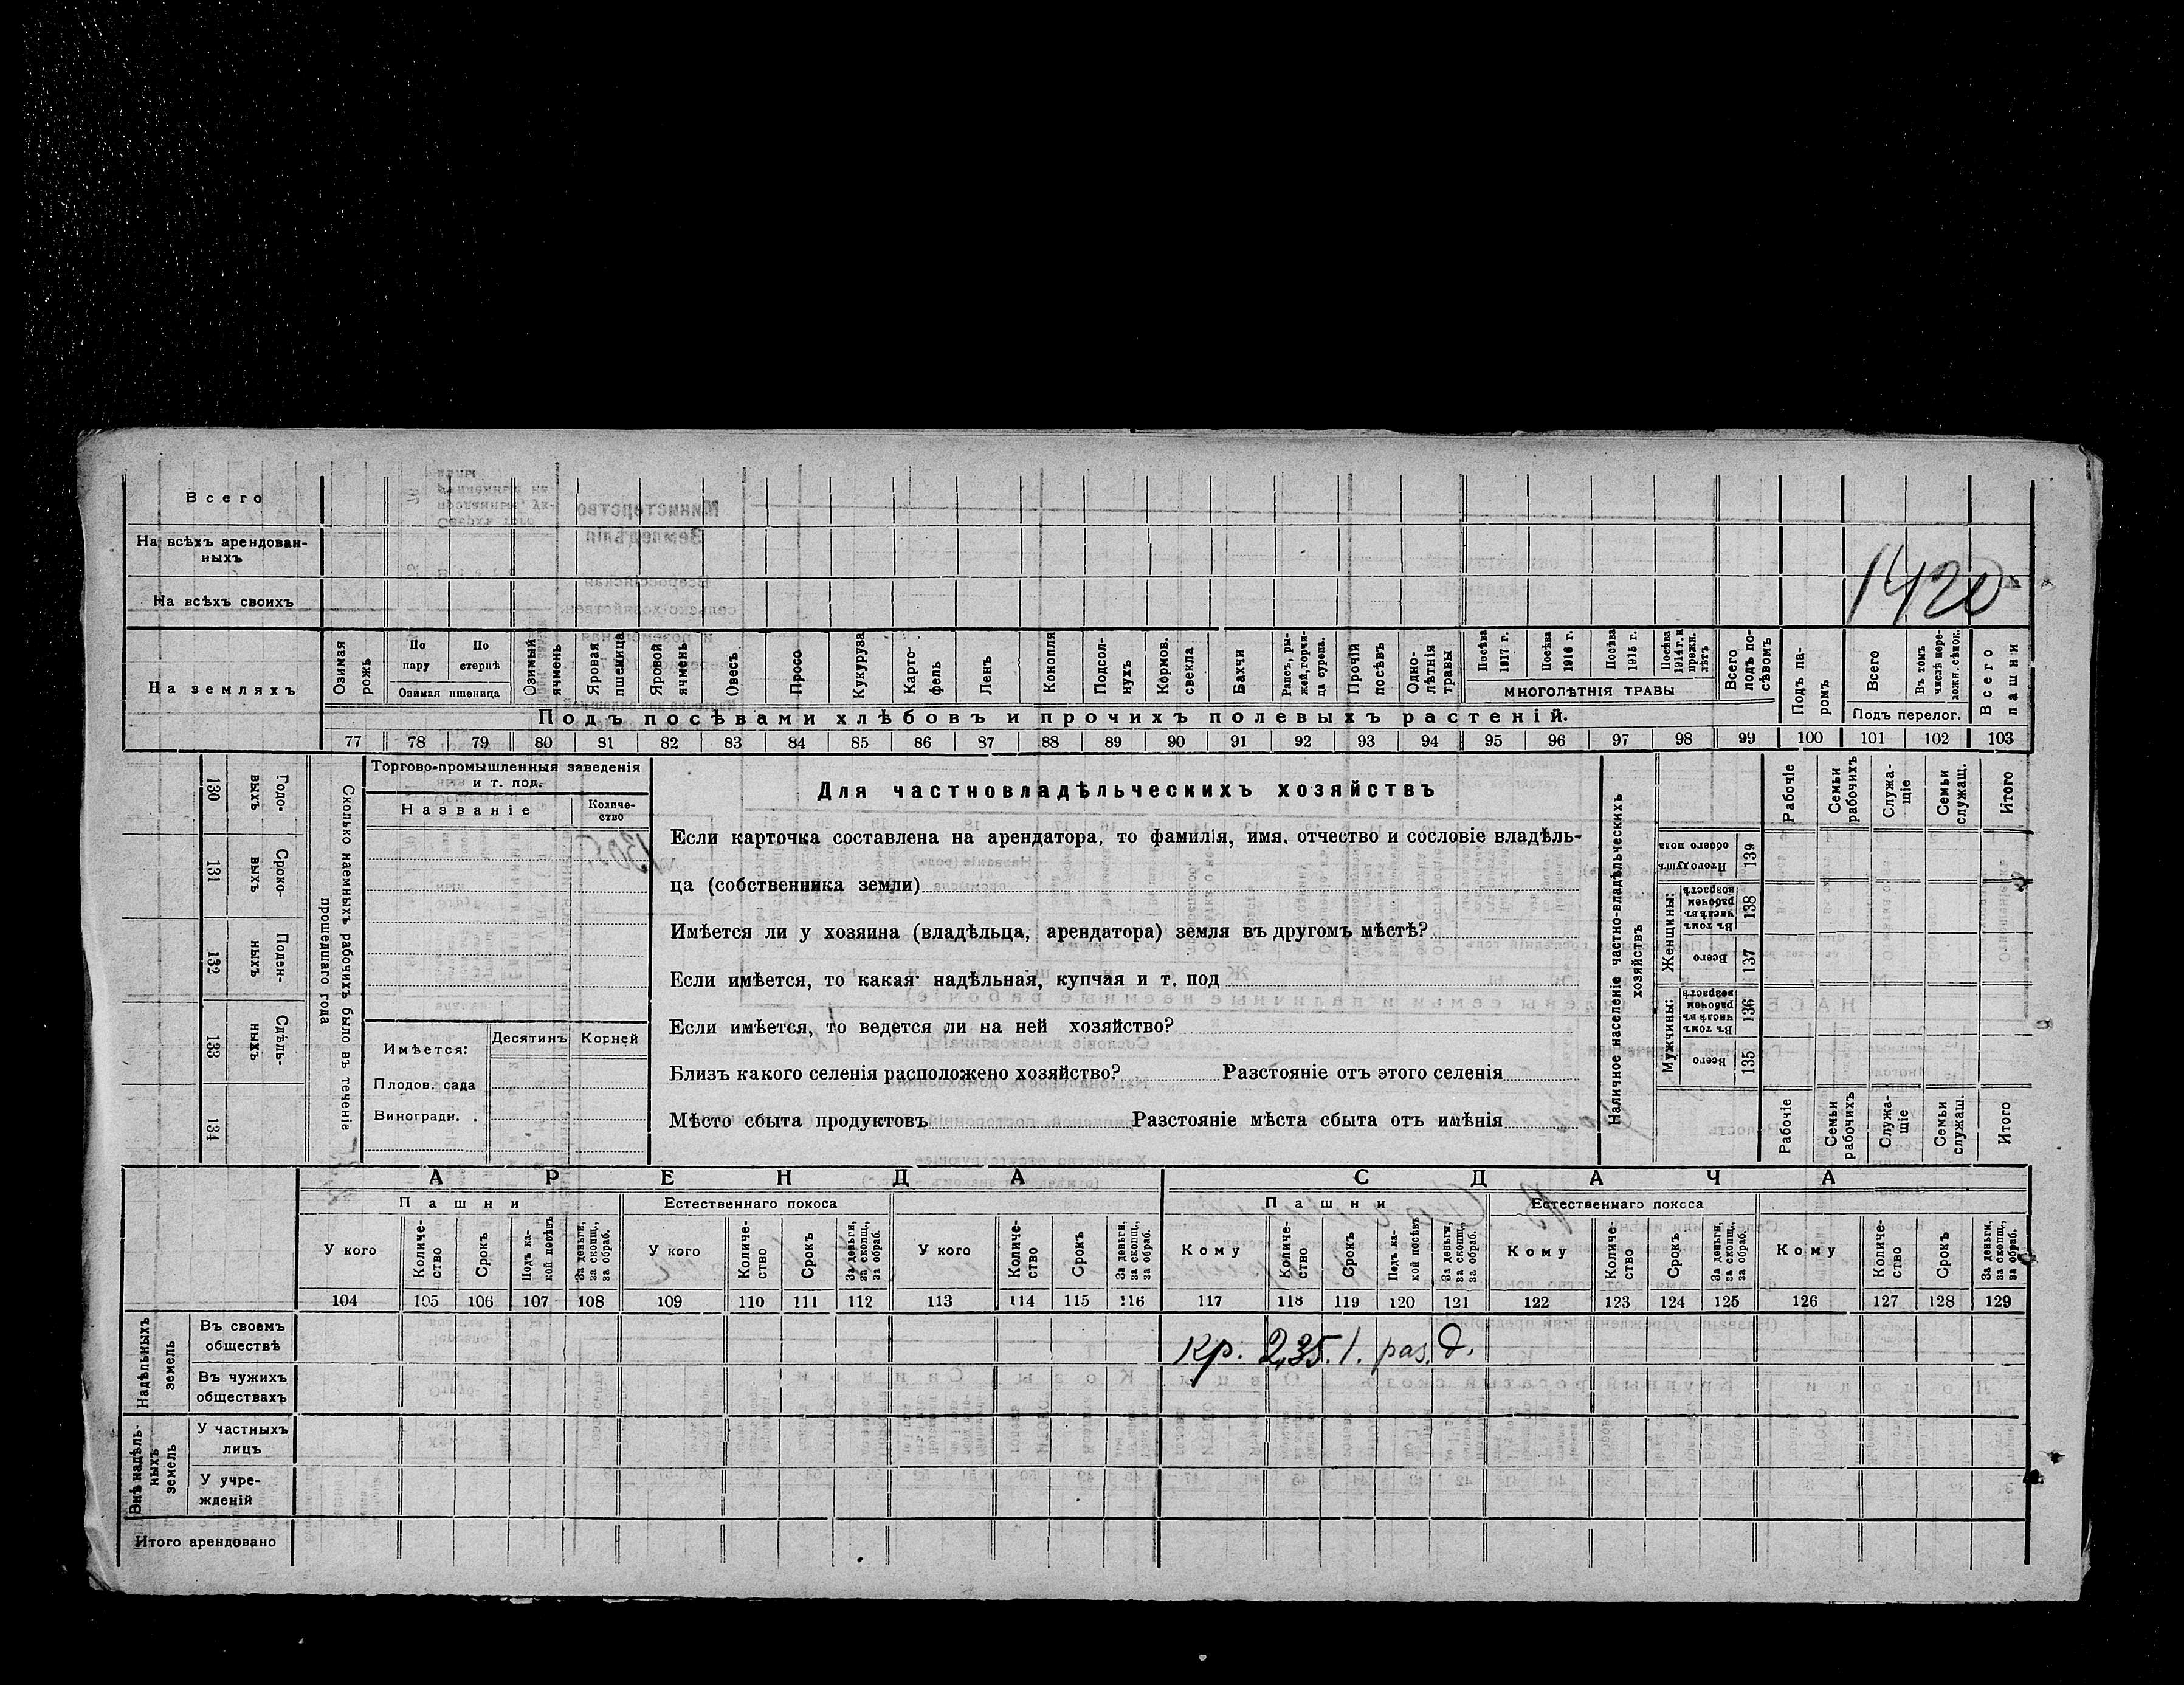 Всего
На всѣхъ арендован-
ныхъ
На всѣхъ своихъ
1420
На земляхъ
Озимая рожь
По пару
По стернѣ
Озимая пшеница
Озимый ячмень
Яровая пшеница
Яровой ячмень
Овесъ
Просо
Кукуруза
Карто-
фель
Ленъ
Конопля
Подсол-
нухъ
Кормов. свекла
Бахчи
Рапсъ, ры-
жей, горчи-
ца сурепа.
Прочій посѣвъ
Одно-
лѣтнія травы
Посѣва 1917 г.
Посѣва 1916 г.
Посѣва 1915 г.
Посѣва 1914 г. и прежн. лѣтъ
МНОГОЛѢТНІЯ ТРАВЫ
Всего подъ по-
сѣвомъ
Подъ па-
ромъ
Всего
Въ томъ числѣ пере-
ложн. сѣнок.
Подъ перелог.
Всего пашни
Подъ посѣвами хлѣбовъ и прочихъ полевыхъ растеній.
77 78 79 80 81 82 83 84 85 86 87 88 89 90 91 92 93 94 95 96 97 98 99 100 101 102 103
130 Годо-
выхъ
131 Сроко-
выхъ
132 Поден-
ныхъ
133 Сдѣль-
ныхъ
134
Сколько наемныхъ рабочихъ было въ теченіе
прошедшаго года
Торгово-промышленныя заведенія
и т. под.
Названіе
Количе-
ство
Имѣется:
Десятинъ
Корней
Плодов. сада
Виноградн. .
Для частновладѣльческихъ хозяйствъ
Если карточка составлена на арендатора, то фамилія, имя, отчество и сословіе владѣль-
ца (собственника земли)
Имѣется ли у хозяина (владѣльца, арендатора) земля въ другомъ мѣстѣ?
Если имѣется, то какая: надѣльная, купчая и т. под
Если имѣется, то ведется ли на ней хозяйство?
Близъ какого селенія расположено хозяйство? Разстояніе отъ этого селенія
Мѣсто сбыта продуктовъ Разстояніе мѣста сбыта отъ имѣнія
Наличное населеніе частно-владѣльческихъ
хозяйствъ
Рабочіе
Семьи рабочихъ
Служа-
щіе
Семьи служащ.
Итого
Итого душъ обоего пола 139
Женщины:
Въ томъ числѣ въ рабочемъ возрастѣ 138
Всего 137
Мужчины:
Въ томъ числѣ въ рабочемъ возрастѣ 136
Всего 135
Рабочіе
Семьи рабочихъ
Служа-
щіе
Семьи служащ.
Итого
АРЕНДА
СДАЧА
Пашни
Естественнаго покоса
Пашни
Естественнаго покоса
У кого
Количе-
ство
Срокъ
Подъ ка-
кой посѣвъ
За деньги, за скопщ., за обраб.
У кого
Количе-
ство
Срокъ
За деньги, за скопщ., за обраб.
У кого
Количе-
ство
Срокъ
За деньги, за скопщ., за обраб.
Кому
Количе-
ство
Срокъ
Подъ ка-
кой посѣвъ
За деньги, за скопщ., за обраб.
Кому
Количе-
ство
Срокъ
За деньги, за скопщ., за обраб.
Кому
Количе-
ство
Срокъ
За деньги, за скопщ., за обраб.
104 105 106 107 108 109 110 111 112 113 114 115 116 117 118 119 120 121 122 123 124 125 126 127 128 129
Надѣльныхъ земель
Въ своемъ
обществѣ
Кр. 2,35. 1. раз. д.
Въ чужихъ
обществахъ
Внѣ надѣль-
ныхъ земель
У частныхъ
лицъ
У учре-
жденій
Итого арендовано